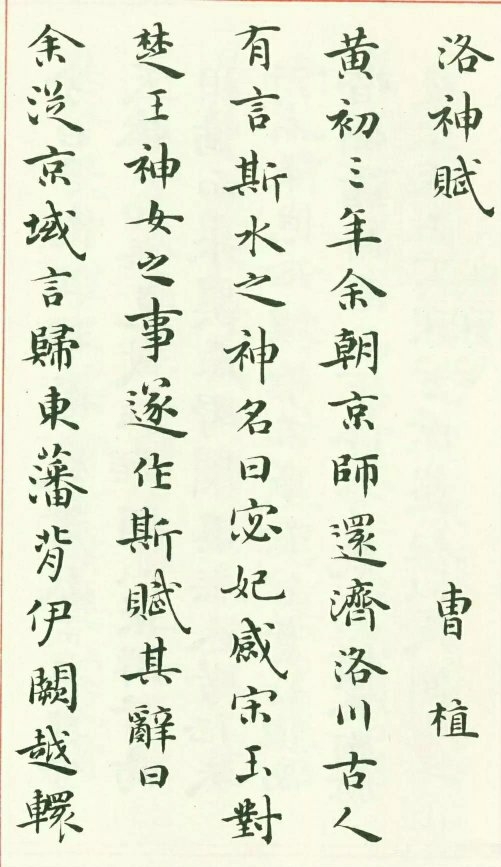 洛神賦 曹植
黃初三年余朝京師還濟洛川古人
有言斯水之神名曰宓妃感宋玉對
楚王神女之事遂作斯賦其辭曰
余從京域言歸東藩背伊闕越轘